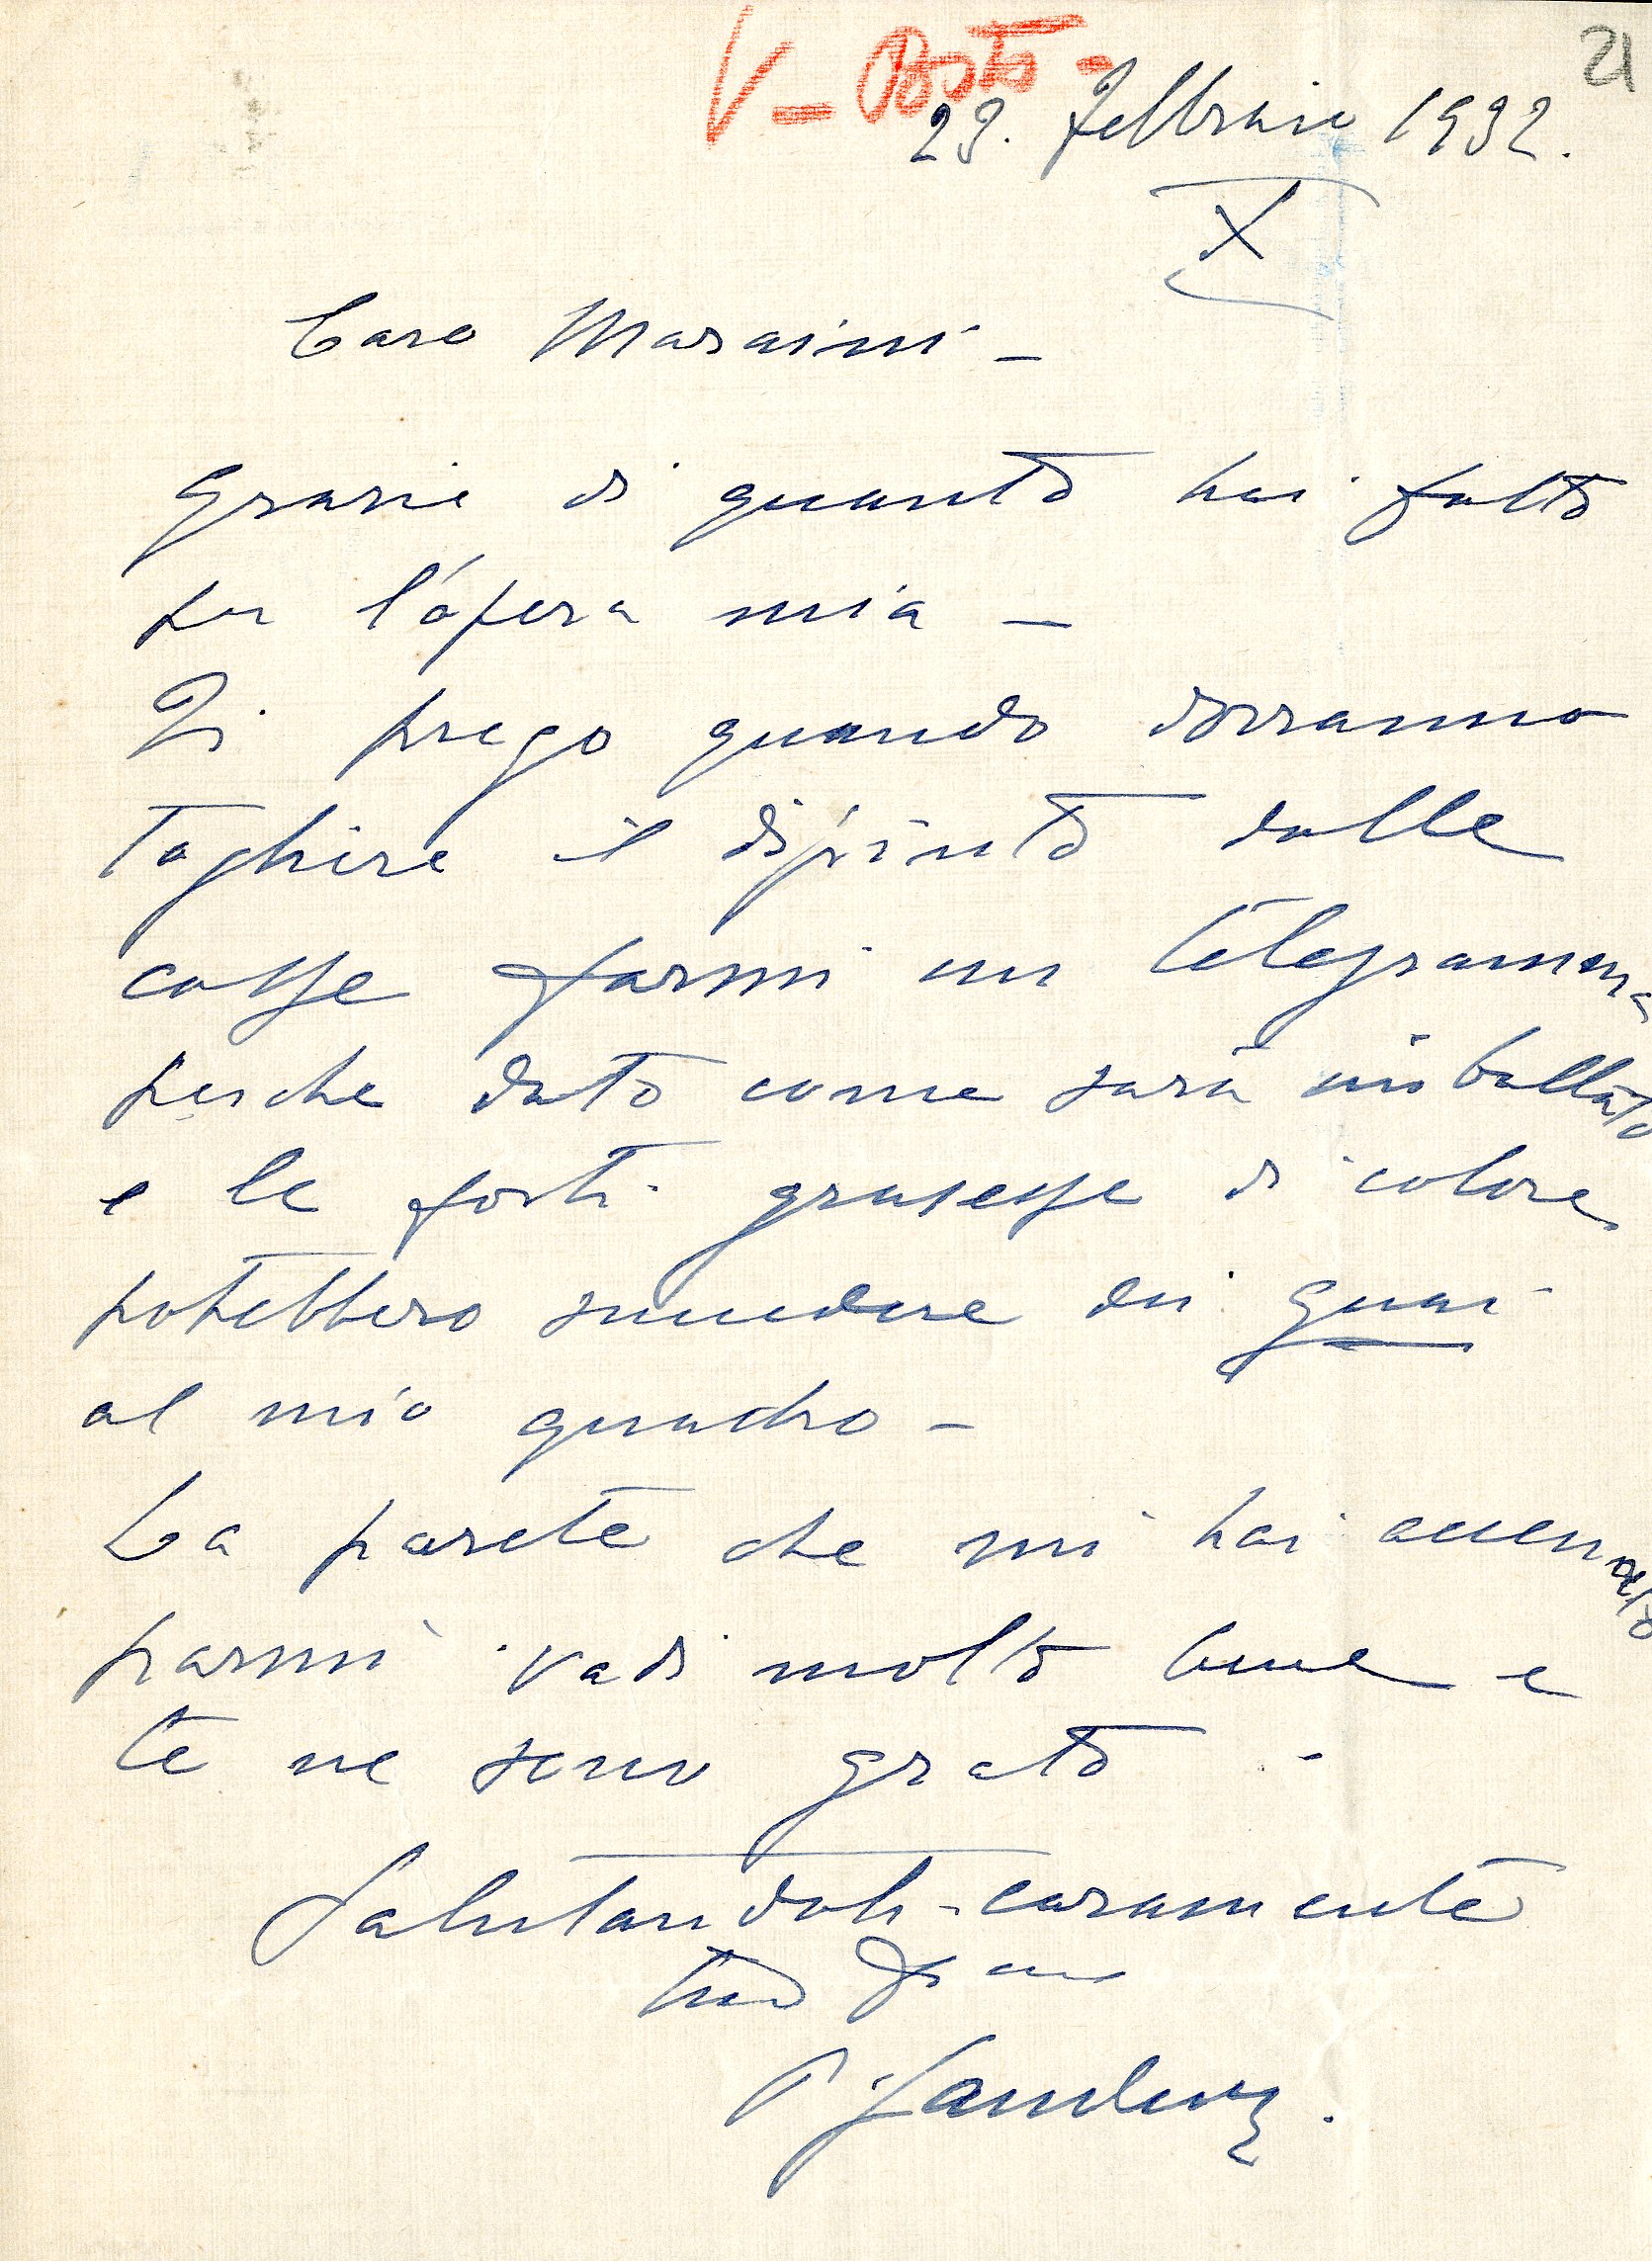 21
V - Posta -
29. Febbraio 1932.
X
Caro Maraini -
Grazie di quanto hai fatto
per l'opera mia -
Ti prego quando dovranno
togliere il dipinto dalle
casse farmi un telegramma
perche dato come sarà imballato
e le forti grossezze di colore
potebbero succedere dei guai
al mio quadro -
La parete che mi hai accennato
parmi vadi molto bene e
te ne sono grato -
Salutandoti caramente
tuo